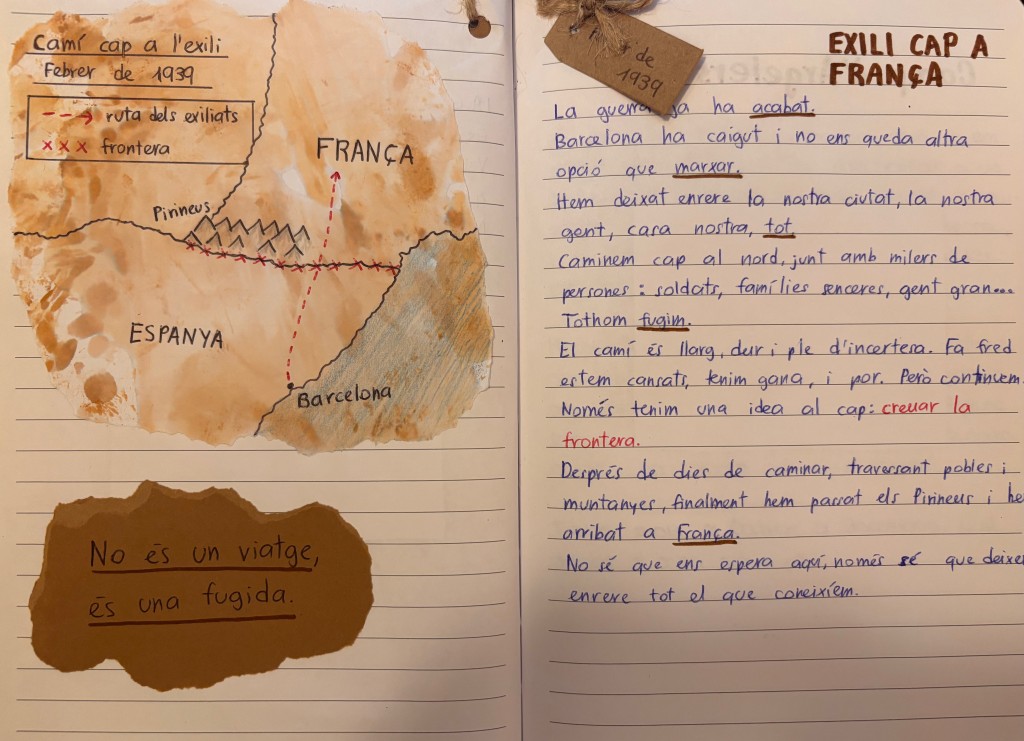 Camí cap a l'exili
Febrer de 1939
ruta dels exiliats
frontera
FRANÇA
Pirineus
ESPANYA
Barcelona
No és un viatge,
és una fugida.
de
1939
EXILI CAP A
FRANÇA
La guerra ja ha acabat.
Barcelona ha caigut i no ens queda altra
opció que marxar.
Hem deixat enrere la nostra ciutat, la nostra
gent, casa nostra, tot.
Caminem cap al nord, junt amb milers de
persones: soldats, famílies senceres, gent gran...
Tothom fugim.
El camí és llarg, dur i ple d'incertesa. Fa fred
estem cansats, tenim gana, i por. Però continuem.
Només tenim una idea al cap: creuar la
frontera.
Després de dies de caminar, travessant pobles i
muntanyes, finalment hem passat els Pirineus i he
arribat a França.
No sé que ens espera aquí, només sé que deixe
enrere tot el que coneixíem.